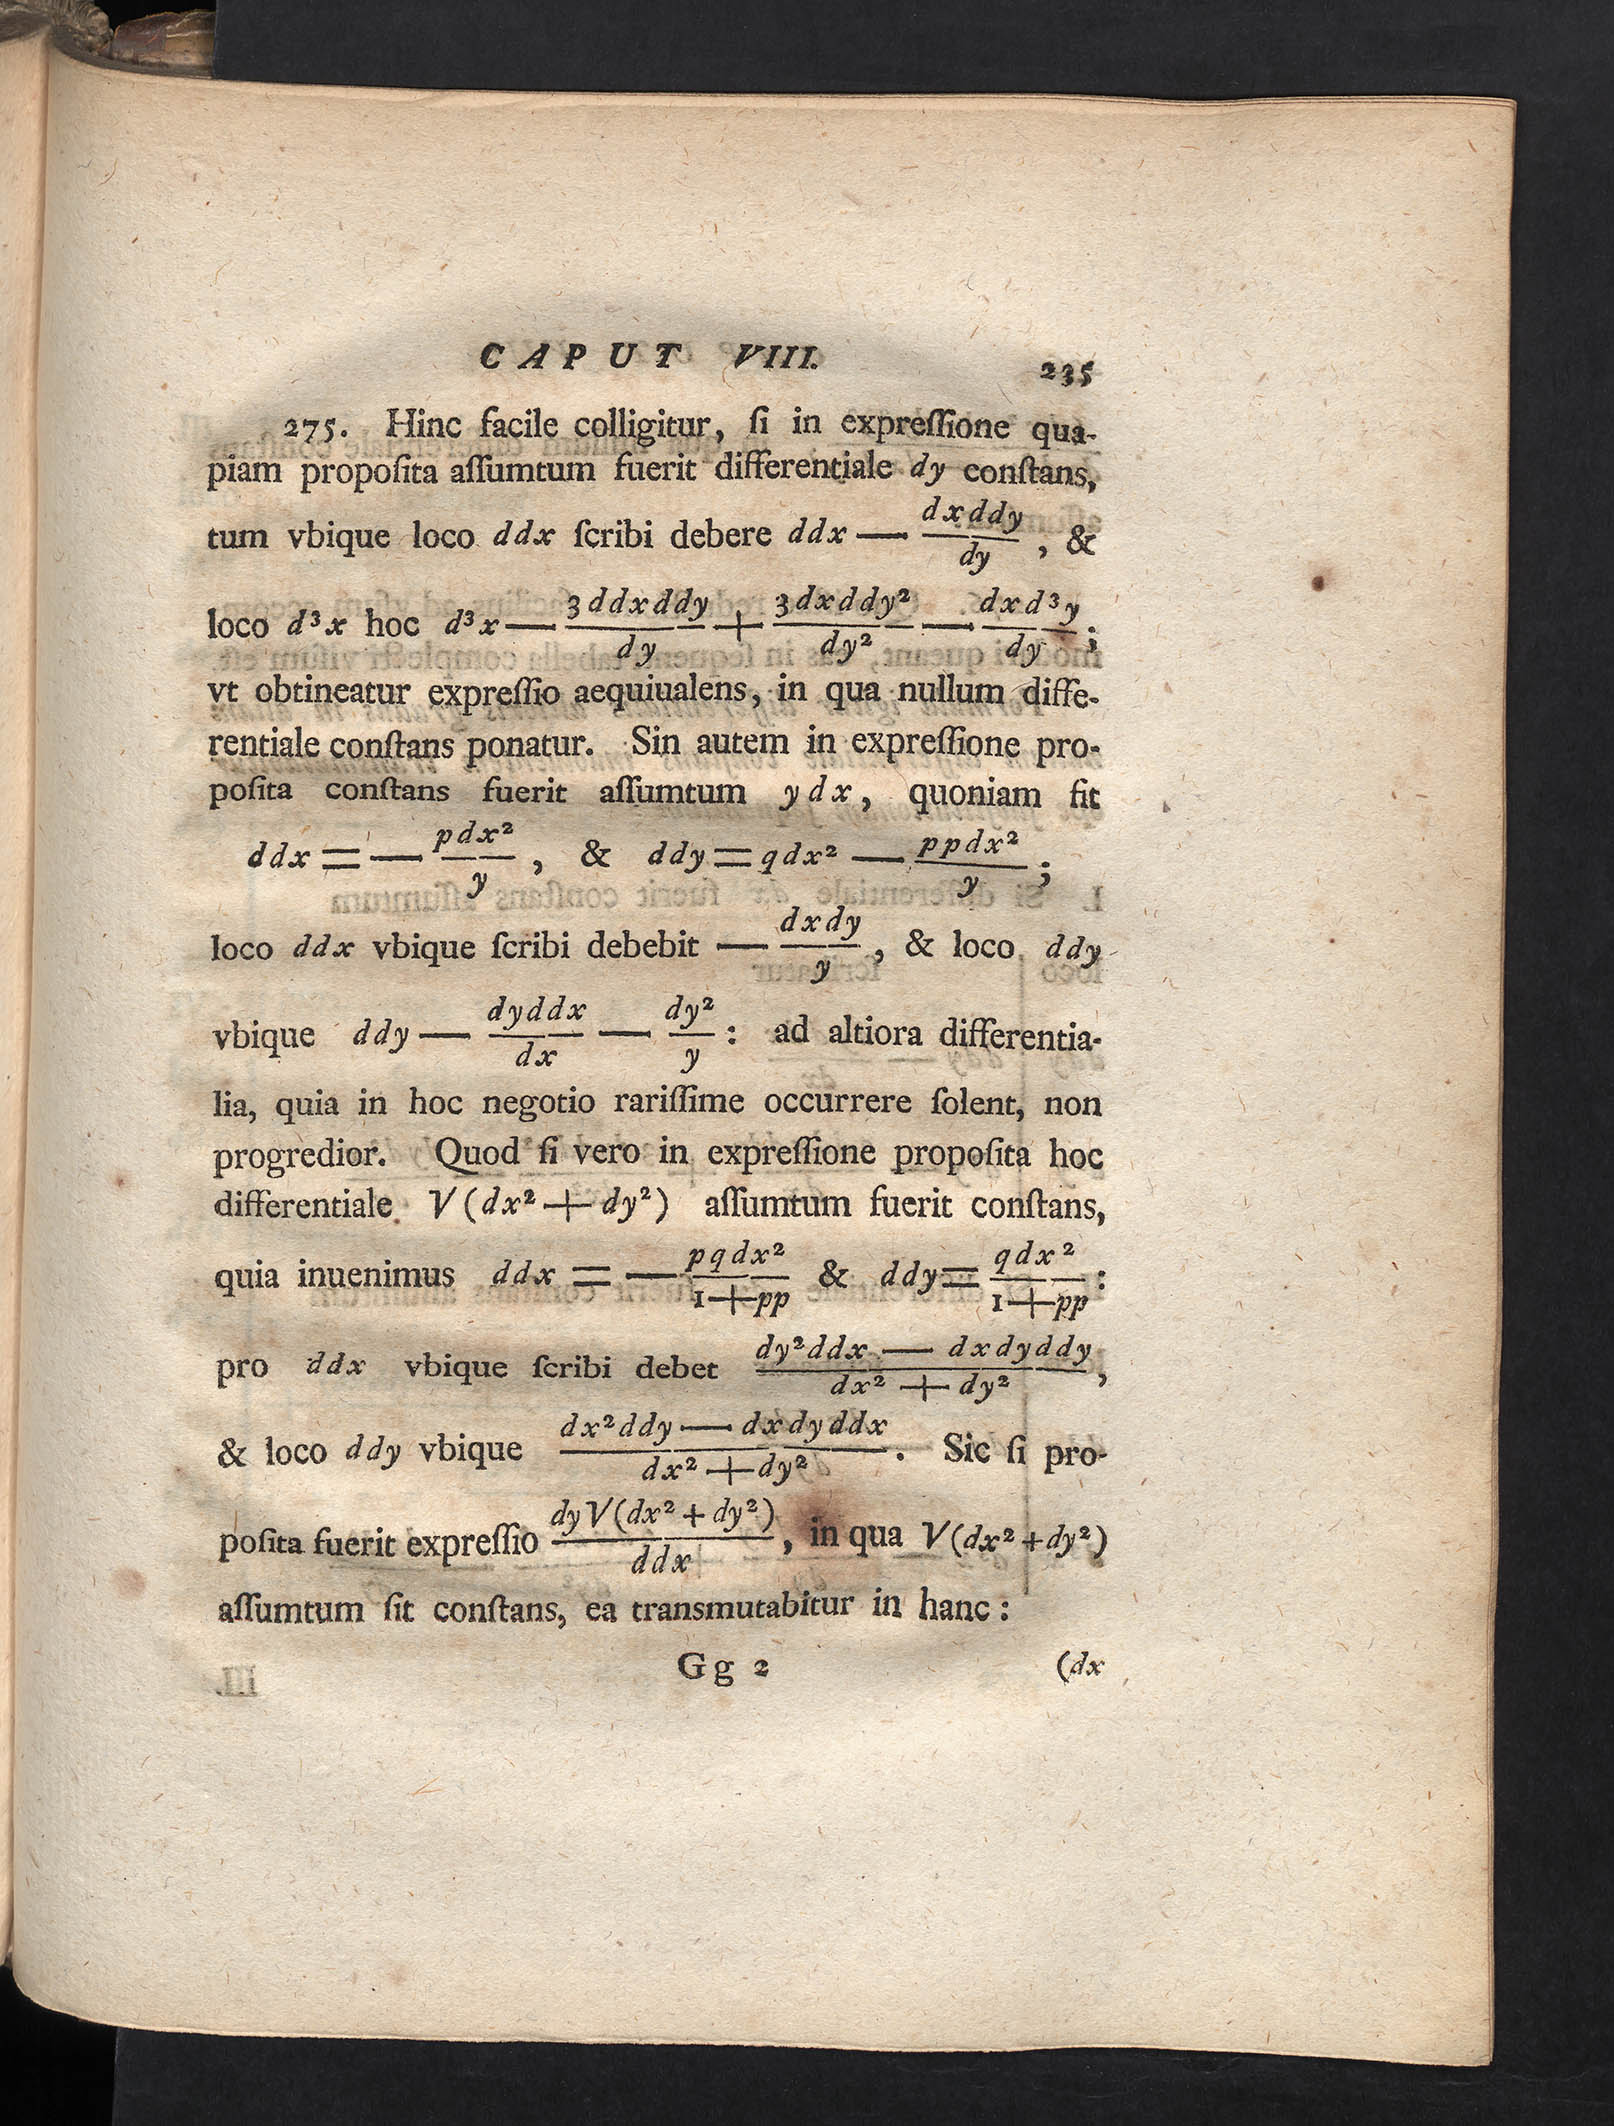 CAPUT VIII. 235
275. Hinc facile colligitur, ſi in expreſſione qua-
piam propoſita aſſumtum fuerit differentiale dy conſtans,
tum vbique loco ddx ſcribi debere ddx — dxddy/dy , &
loco d³x hoc d³x — 3ddxddy/dy + 3dxddy²/dy² — dxd³y/dy ;
vt obtineatur expreſſio aequiualens, in qua nullum diffe-
rentiale conſtans ponatur. Sin autem in expreſſione pro-
poſita conſtans fuerit aſſumtum ydx, quoniam fit
ddx = — pdx²/y , & ddy = qdx² — ppdx²/y ;
loco ddx vbique ſcribi debebit — dxdy/y , & loco ddy
vbique ddy — dyddx/dx — dy²/y : ad altiora differentia-
lia, quia in hoc negotio rariſſime occurrere ſolent, non
progredior. Quod ſi vero in expreſſione propoſita hoc
differentiale V(dx² + dy²) aſſumtum fuerit conſtans,
quia inuenimus ddx = — pqdx²/1+pp & ddy = qdx²/1+pp :
pro ddx vbique ſcribi debet dy²ddx — dxdyddy/dx² + dy² ,
& loco ddy vbique dx²ddy — dxdyddx/dx² + dy² . Sic ſi pro-
poſita fuerit expreſſio dyV(dx² + dy²)/ddx , in qua V(dx² + dy²)
aſſumtum ſit conſtans, ea transmutabitur in hanc :
Gg 2 (dx